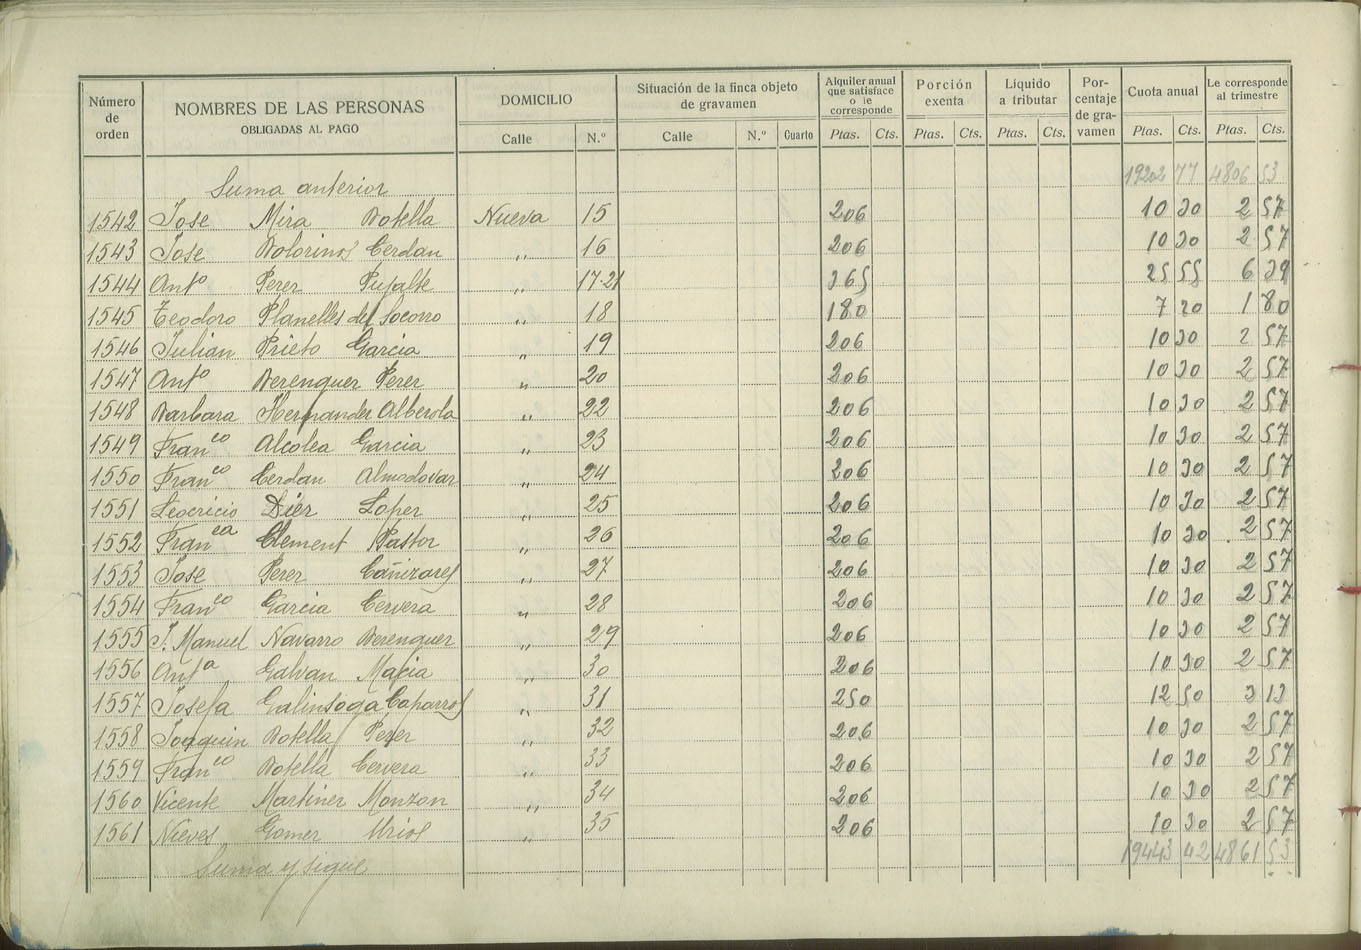 Número de orden | NOMBRES DE LAS PERSONAS OBLIGADAS AL PAGO | DOMICILIO | Situación de la finca objeto de gravamen | Alquiler anual que satisface o le corresponde | Porción exenta | Líquido a tributar | Por-centaje de gra-vamen | Cuota anual | Le corresponde al trimestre
Calle | N.º | Calle | N.º | Cuarto | Ptas. | Cts. | Ptas. | Cts. | Ptas. | Cts. | Ptas. | Cts. | Ptas. | Cts.
Suma anterior 19202 77 4806 53
1542 Jose Mira Botella Nueva 15 206 10 30 2 57
1543 Jose Bolorinos Cerdan " 16 206 10 30 2 57
1544 Antº Perez Pujalte " 17-21 365 25 55 6 39
1545 Teodoro Planelles del Socorro " 18 180 7 20 1 80
1546 Julian Prieto Garcia " 19 206 10 30 2 57
1547 Antº Berenguer Perez " 20 206 10 30 2 57
1548 Barbara Hernandez Alberola " 22 206 10 30 2 57
1549 Franco Alcolea Garcia " 23 206 10 30 2 57
1550 Franco Cerdan Almodovar " 24 206 10 30 2 57
1551 Leocricio Dier Lopez " 25 206 10 30 2 57
1552 Franca Clement Pastor " 26 206 10 30 2 57
1553 Jose Perez Cañizares " 27 206 10 30 2 57
1554 Franco Garcia Cervera " 28 206 10 30 2 57
1555 J. Manuel Navarro Berenguer " 29 206 10 30 2 57
1556 Antª Galvan Macia " 30 206 10 30 2 57
1557 Josefa Galinsoga Caparros " 31 250 12 50 3 13
1558 Joaquin Botella Perez " 32 206 10 30 2 57
1559 Franco Botella Cervera " 33 206 10 30 2 57
1560 Vicente Martinez Monzon " 34 206 10 30 2 57
1561 Nieves Gomez Uriol " 35 206 10 30 2 57
Suma y sigue 19443 42 4861 53